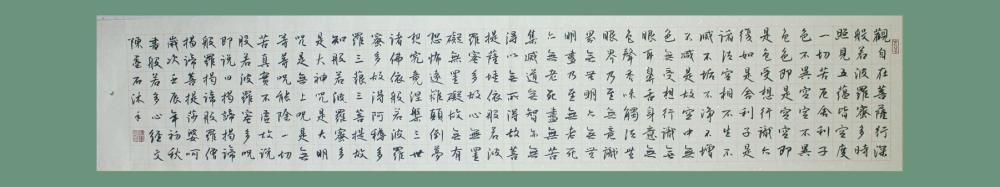 觀自在菩薩行深
般若波羅蜜多時
照見五蘊皆空度
一切苦厄舍利子
色不異空空不異
色色即是空空即
是色受想行識亦
復如是舍利子是
諸法空相不生不
滅不垢不淨不增
不減是故空中無
色無受想行識無
眼耳鼻舌身意無
色聲香味觸法無
眼界乃至無意識
界無無明亦無無
明盡乃至無老死
亦無老死盡無苦
集滅道無智亦無
得以無所得故菩
提薩埵依般若波
羅蜜多故心無罣
礙無罣礙故無有
恐怖遠離顛倒夢
想究竟涅槃三世
諸佛依般若波羅
蜜多故得阿耨多
羅三藐三菩提故
知般若波羅蜜多
是大神咒是大明
咒是無上咒是無
等等咒能除一切
苦真實不虛故說
般若波羅蜜多咒
即說曰揭諦揭諦
般羅揭諦般羅僧
揭諦菩提莎婆呵
歲次壬辰年初秋
書般若多心經文
陳虛石沐手